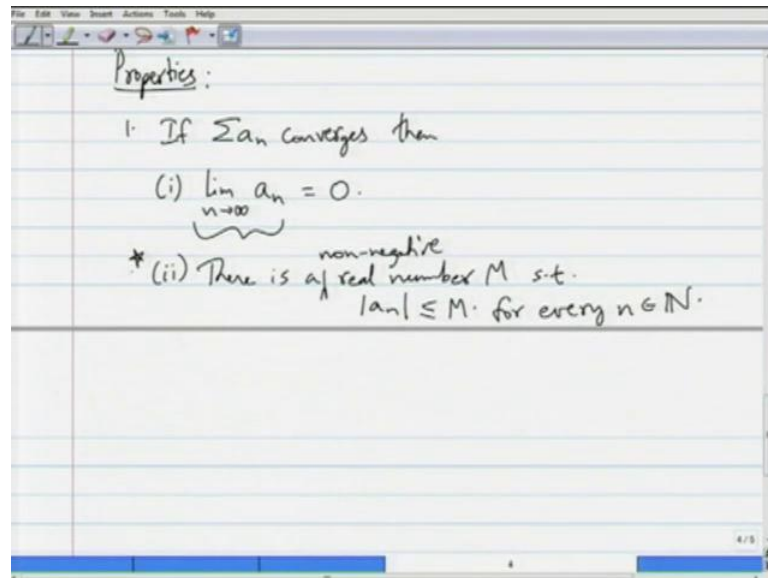 File Edit View Insert Actions Tools Help
Properties:
1. If Σaₙ converges then
(i) lim aₙ = 0.
n→∞
non-negative
* (ii) There is a real number M s.t.
|aₙ| ≤ M. for every n ∈ ℕ.
4/5
4